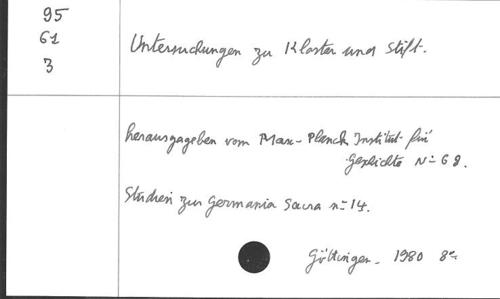 95
61
3
Untersuchungen zu Kloster und Stift.
herausgegeben vom Max-Planck Institut für
Geschichte N° 68.
Studien zur Germania Sacra n° 14.
Göttingen - 1980 8°